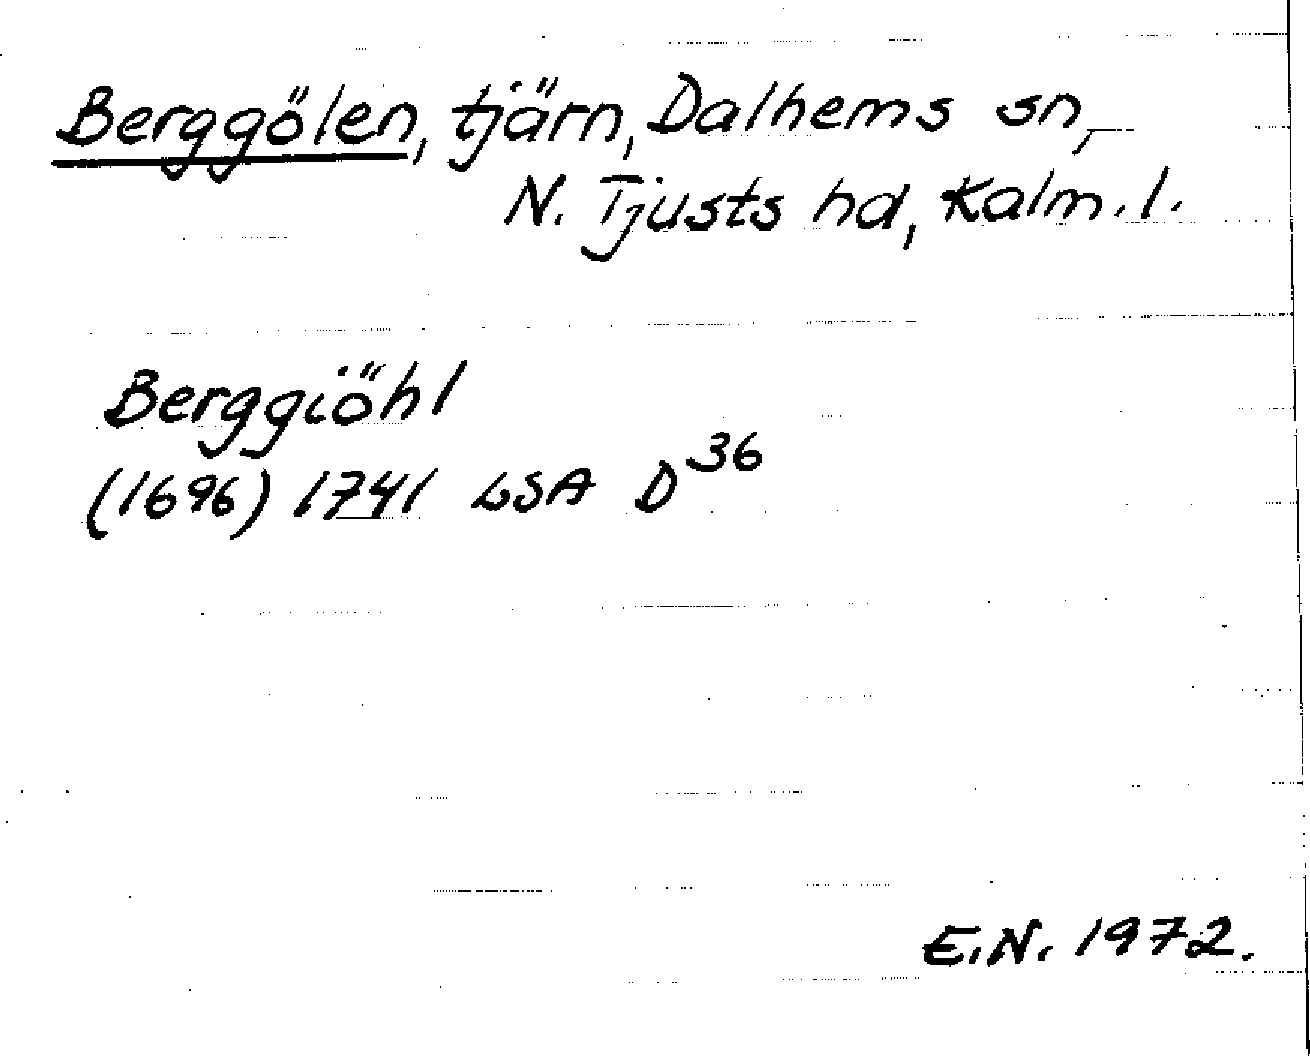 Berggölen, tjärn, Dalhems sn,
N. Tjusts hd, Kalm. l.
Berggiöhl
(1696) 1741 LSA D36
E.N. 1972.